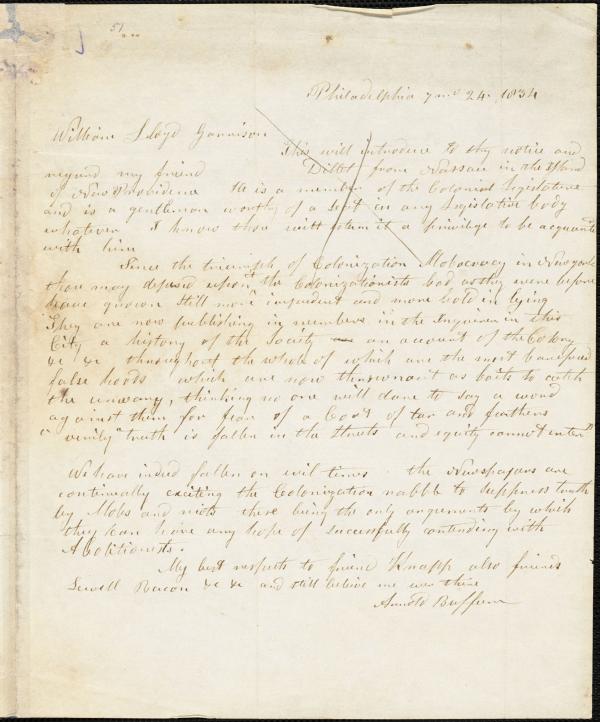 51
Philadelphia 7 mo 24. 1834
William Lloyd Garrison
This will introduce to thy notice and
regard my friend Dillet from Nassau in the Island
of New Providence He is a member of the Colonial Legislature
and is a gentleman worthy of a seat in any Legislative body
whatever I know thou wilt esteem it a privilege to be acquainted
with him
Since the triumph of Colonization Mobocracy in New york
thou may depend upon it the Colonizationists bad as they were before
have grown still more impudent and more bold in lying
They are now publishing in numbers in the Inquirer in this
City, a history of the Society an account of the Colony
&c &c throughout the whole of which are the most barefaced
false hoods which are now thrown out as baits to catch
the unwary, thinking no one will dare to say a word
against them for fear of a Coat of tar and feathers
"verily" truth is fallen in the streets and equity cannot enter"
We have indeed fallen on evil times. the Newspapers are
continually exciting the Colonization rabble to suppress truth
by Mobs and riots these being the only arguments by which
they can have any hope of successfully contending with
Abolitionists.
My best respects to friend Knapp also friends
Sewell Bacon &c &c and still believe me ever thine
Arnold Buffum